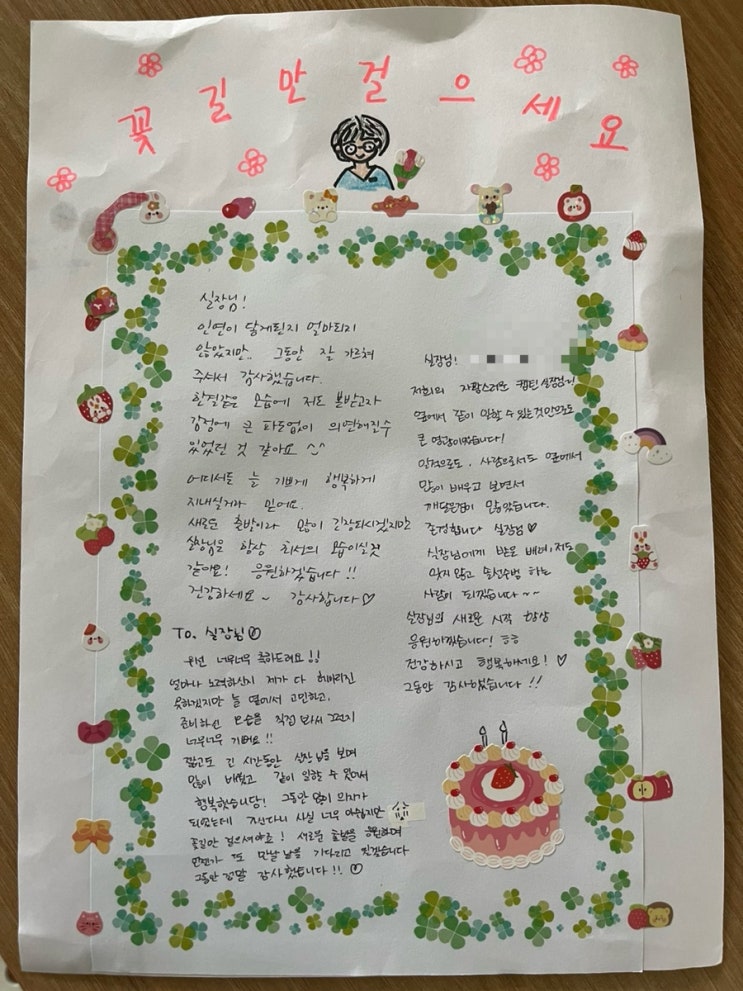 꽃길만 걸으세요
실장님!
인연이 닿게된지 얼마되지
않았지만.. 그동안 잘 가르쳐
주셔서 감사했습니다.
한결같은 모습에 저도 본받고자
감정에 큰 파도없이 의연해질수
있었던 것 같아요 ^^
어디서든 늘 기쁘게 행복하게
지내실거라 믿어요.
새로운 출발이라 많이 긴장되시겠지만
실장님은 항상 최선의 모습이실것
같아요! 응원하겠습니다!!
건강하세요~ 감사합니다♡
To. 실장님
우선 너무너무 축하드려요!!
얼마나 노력하신지 제가 다 헤아리진
못하겠지만 늘 옆에서 고민하고,
준비하신 모습을 직접 봐서 그런지
너무너무 기뻐요!!
짧고도 긴 시간동안 실장님을 보며
많이 배웠고 같이 일할 수 있어서
행복했습니당! 그동안 많이 의지가
되었는데 가신다니 사실 너무 아쉽지만
꽃길만 걸으셔야죠! 새로운 출발을 응원하며
언젠가 또 만날 날을 기다리고 있겠습니다
그동안 정말 감사했습니다!!
실장님!
저희의 자랑스러운 캡틴 실장님의
옆에서 같이 일할 수 있는것만으로도
큰 영광이었습니다!
일적으로도, 사람으로서도 옆에서
많이 배우고 보면서
깨달은점이 많았습니다.
존경합니다 실장님♡
실장님에게 받은 배려, 저도
잊지 않고 솔선수범 하는
사람이 되겠습니다~~
실장님의 새로운 시작 항상
응원하겠습니다! ㅎㅎ
건강하시고 행복하세요! ♡
그동안 감사했습니다!!